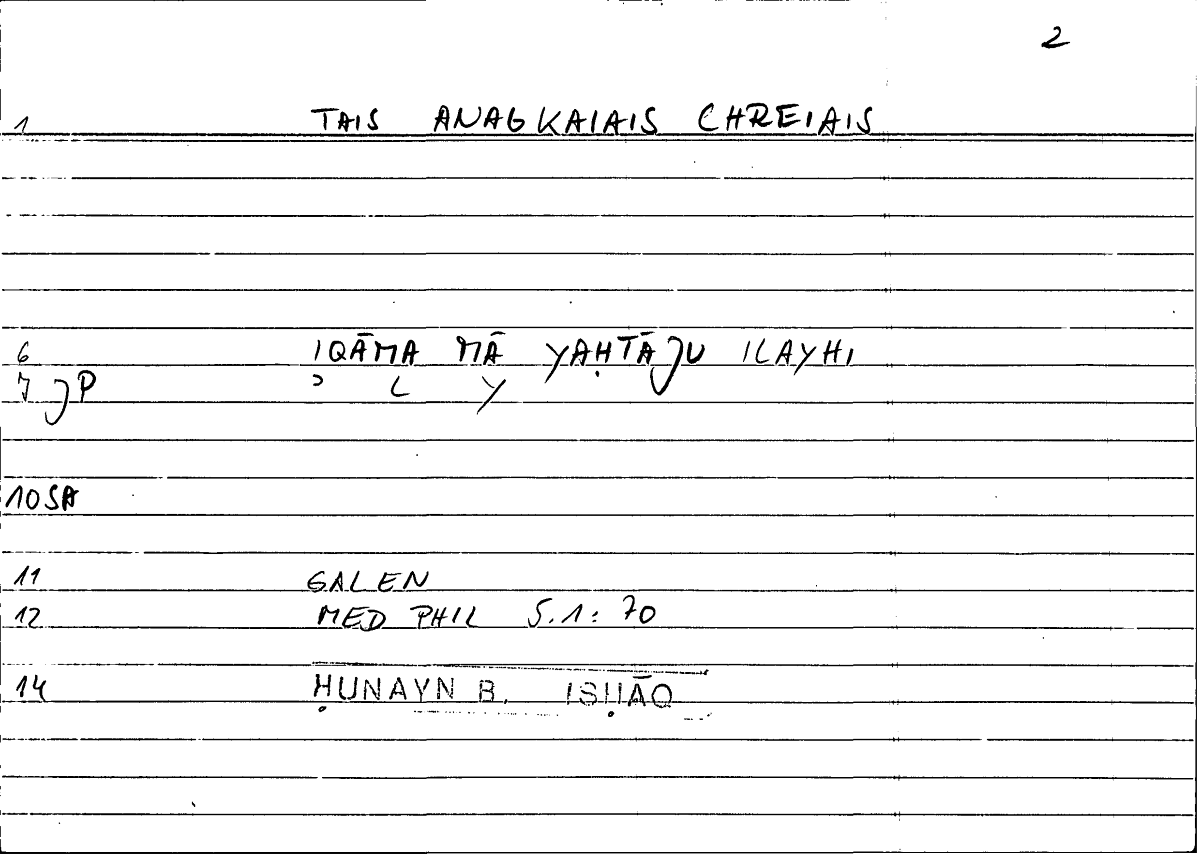 2
1 TAIS ANAGKAIAIS CHREIAIS
6 IQĀMA MĀ YAḤTĀJU ILAYHI
7 JP ɔ L Y
10 SA
11 GALEN
12 MED PHIL 5.1: 70
14 ḤUNAYN B. ISḤĀQ